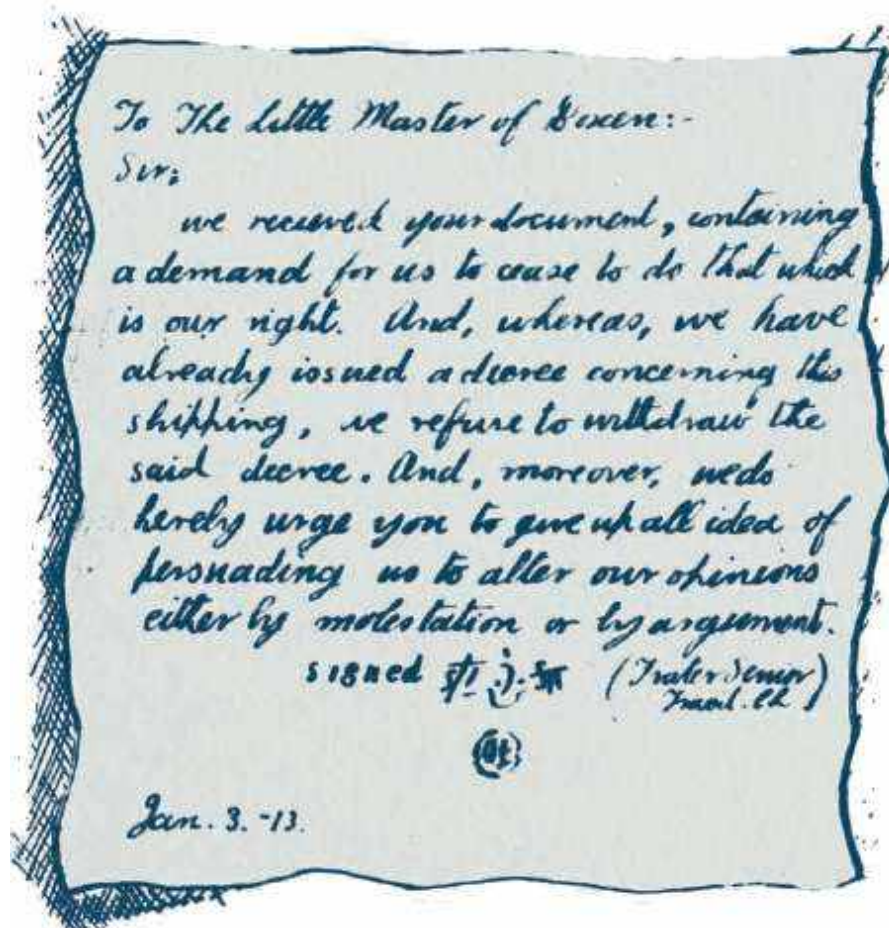 To The Little Master of Boxen:-
Sir;
we recieved your document, containing
a demand for us to cease to do that which
is our right. And, whereas, we have
already issued a decree concerning this
shipping, we refuse to withdraw the
said decree. And, moreover, we do
hereby urge you to give up all idea of
persuading us to alter our opinions
either by molestation or by arguement.
signed (Frater Senior)
Jan. 3.-13.